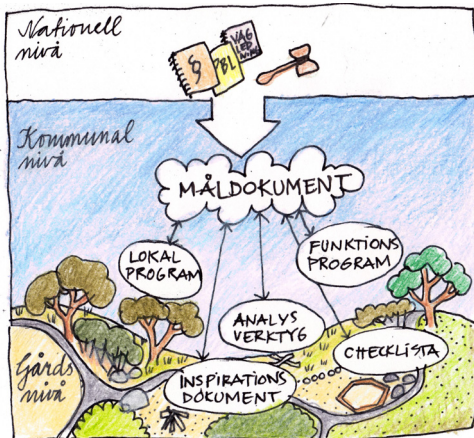 Nationell
nivå
§
PBL
VÄG
LED
NING
Kommunal
nivå
MÅLDOKUMENT
LOKAL
PROGRAM
FUNKTIONS
PROGRAM
ANALYS
VERKTYG
CHECKLISTA
INSPIRATIONS
DOKUMENT
Gårds
nivå